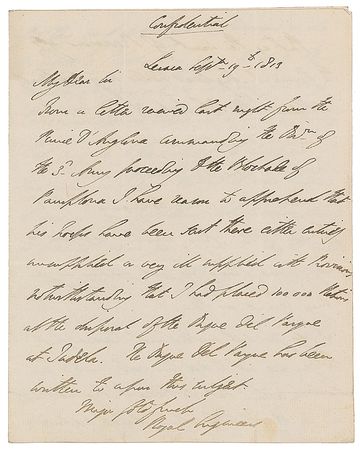 Confidential
Lesaca Septr 19th 1813
My Dear Sir
From a letter received last night from the
Prince D'Anglona commanding the Divn of
the 3d Army proceeding to the Blockade of
Pamplona I have reason to apprehend that
his troops have been sent there either entirely
unsupplied or very ill supplied with Provisions
notwithstanding that I had placed 100.000 Rations
at the disposal of the Duque del Parque
at Tudela. The Duque del Parque has been
written to upon this subject
Major Goldfinch
Royal Engineers